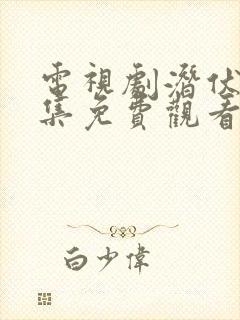 電視劇潛伏
集免費觀看
白少偉